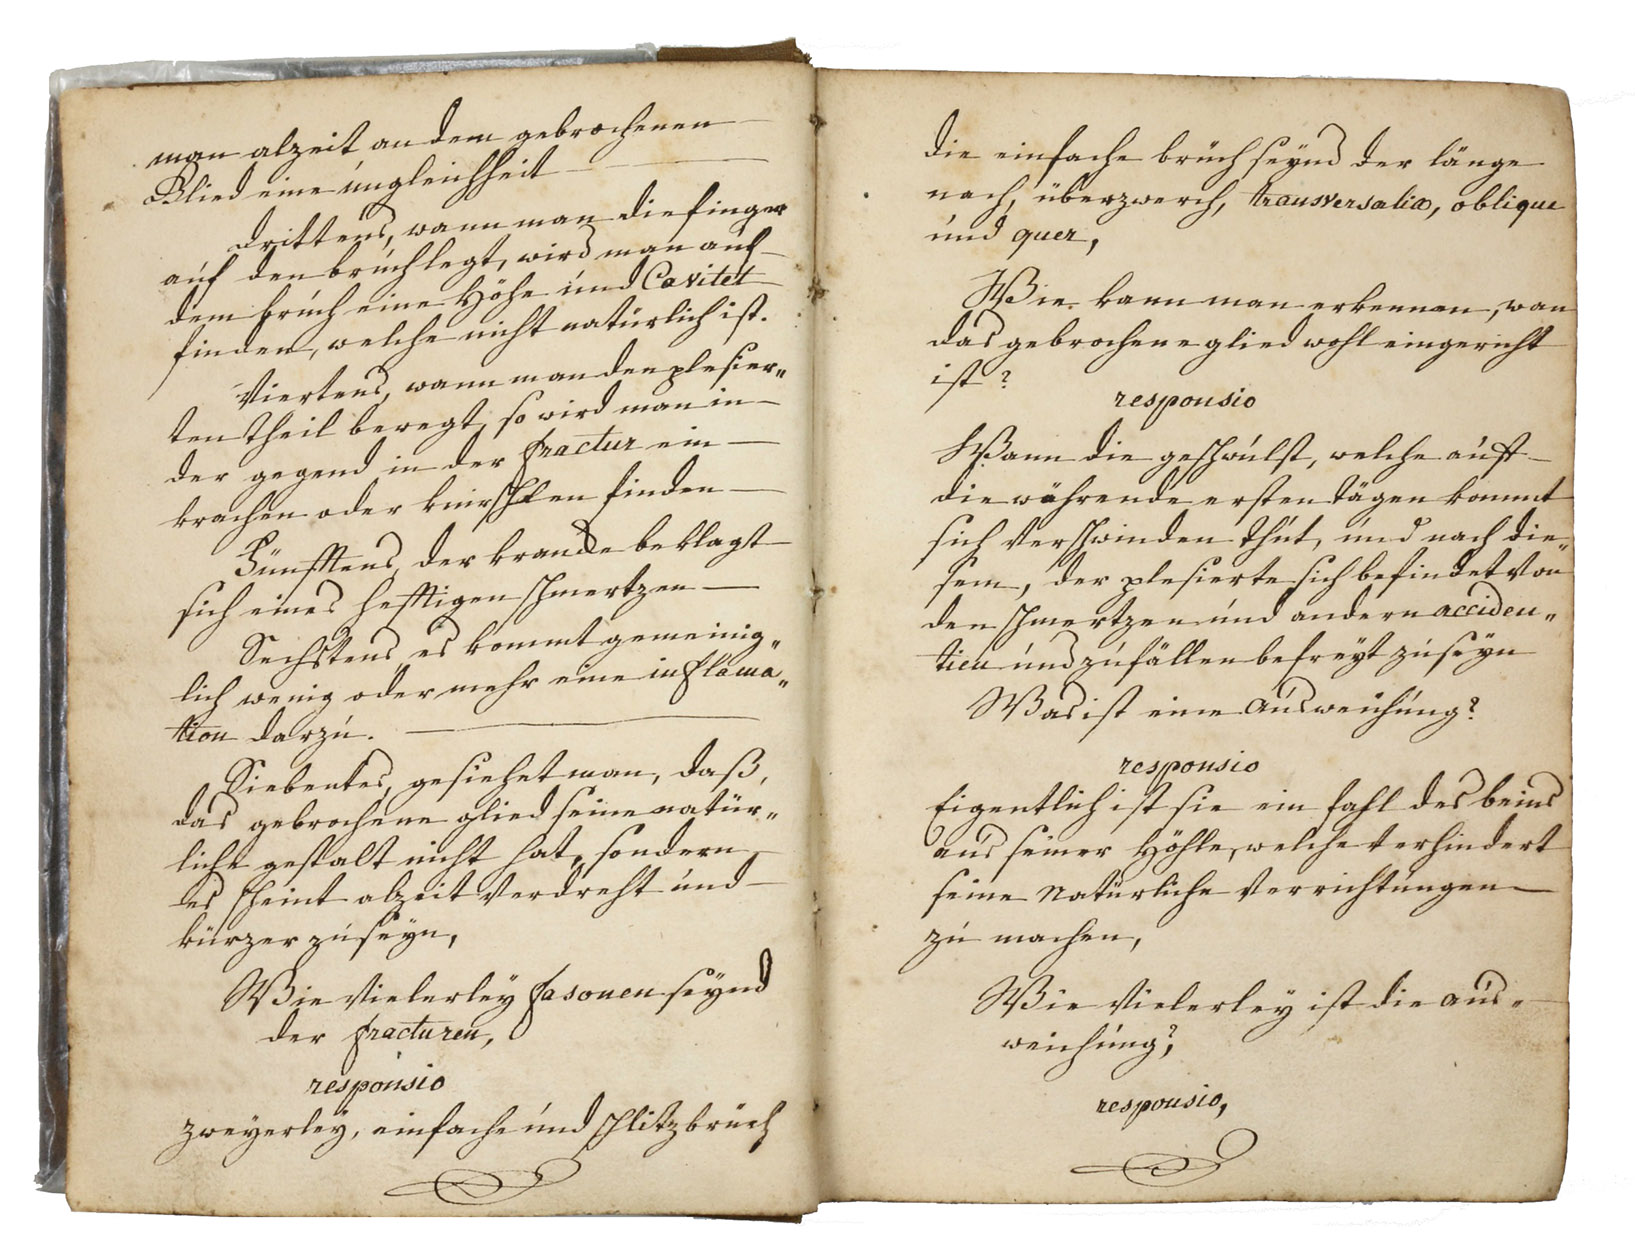 man alzeit an dem gebrochenen
Glied eine ungleichheit
drittens, wann man die finger
auf den bruch legt, wird man auf
dem bruch eine Höhe und Cavitet
finden, welche nicht natürlich ist.
Viertens, wann man den plesier„
ten theil bewegt, so wird man in
der gegend in der fractur ein
krachen oder knirschen finden
Fünfftens, der krancke beklagt
sich eines hefftigen schmertzen
Sechstens, es kommt gemeinig„
lich wenig oder mehr eine inflama„
tion darzu.
Siebentes, gesiehet man, daß,
das gebrochene glied seine natür„
liche gestalt nicht hat, sondern
es scheint alzeit Verdreht und
kürzer zu seyn,
Wie Vielerley fasonen seynd
der fracturen,
responsio
zweyerley, einfache und schlitzbrüch
die einfache brüch seynd der länge
nach, überzwerch, transversaliæ, oblique
und quer,
Wie kann man erkennen, wan
das gebrochene glied wohl eingericht
ist?
responsio
Wann die geschwulst, welche auff
die währende ersten tägen kommt
sich Verschwinden thut, und nach die„
sem, der plesierte sich befindet Von
den schmertzen und andern acciden„
tien und zufällen befreyt zu seyn
Was ist eine Ausweichung?
responsio
Eigentlich ist sie ein fahl des beins
aus seiner Höhle, welche verhindert
seine Natürliche Verrichtungen
zu machen,
Wie Vielerley ist die aus„
weichung?,
responsio,